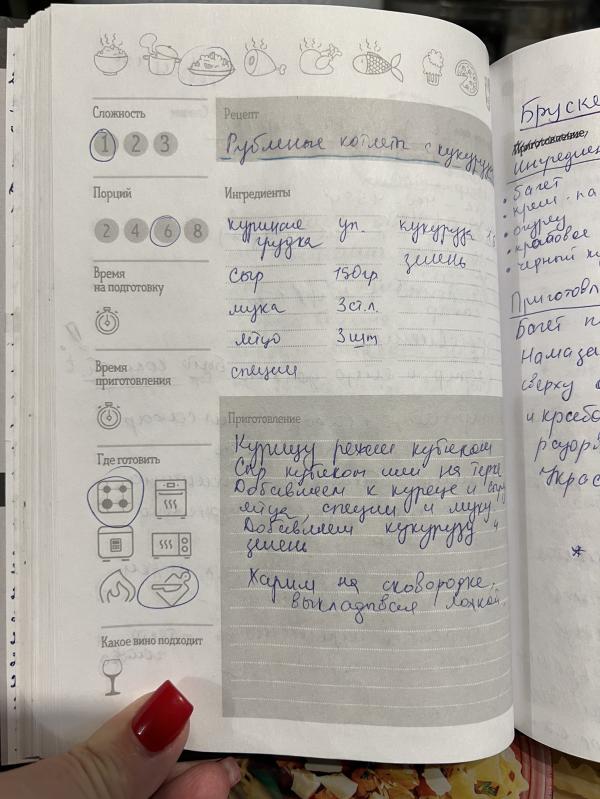 Сложность
1 2 3
Порций
2 4 6 8
Время
на подготовку
Время
приготовления
Где готовить
Какое вино подходит
Рецепт
Рубленые котлеты с кукурузой
Ингредиенты
куриные уп.
грудка
сыр 150гр
мука 3ст.л.
яйцо 3шт
специи
кукуруза
зелень
Приготовление
Курицу режем кубиком
Сыр кубиком или на терке
Добавляем к курице и сыру
яйца, специи и муку
Добавляем кукурузу и
зелень
Жарим на сковородке,
выкладывая ложкой.
Бруске
Приготовление,
Ингредиен
• багет
• крем-
• огурец
• крабовое
• черный
Приготовл
Багет
Намаза
сверху
и крабо
Украс